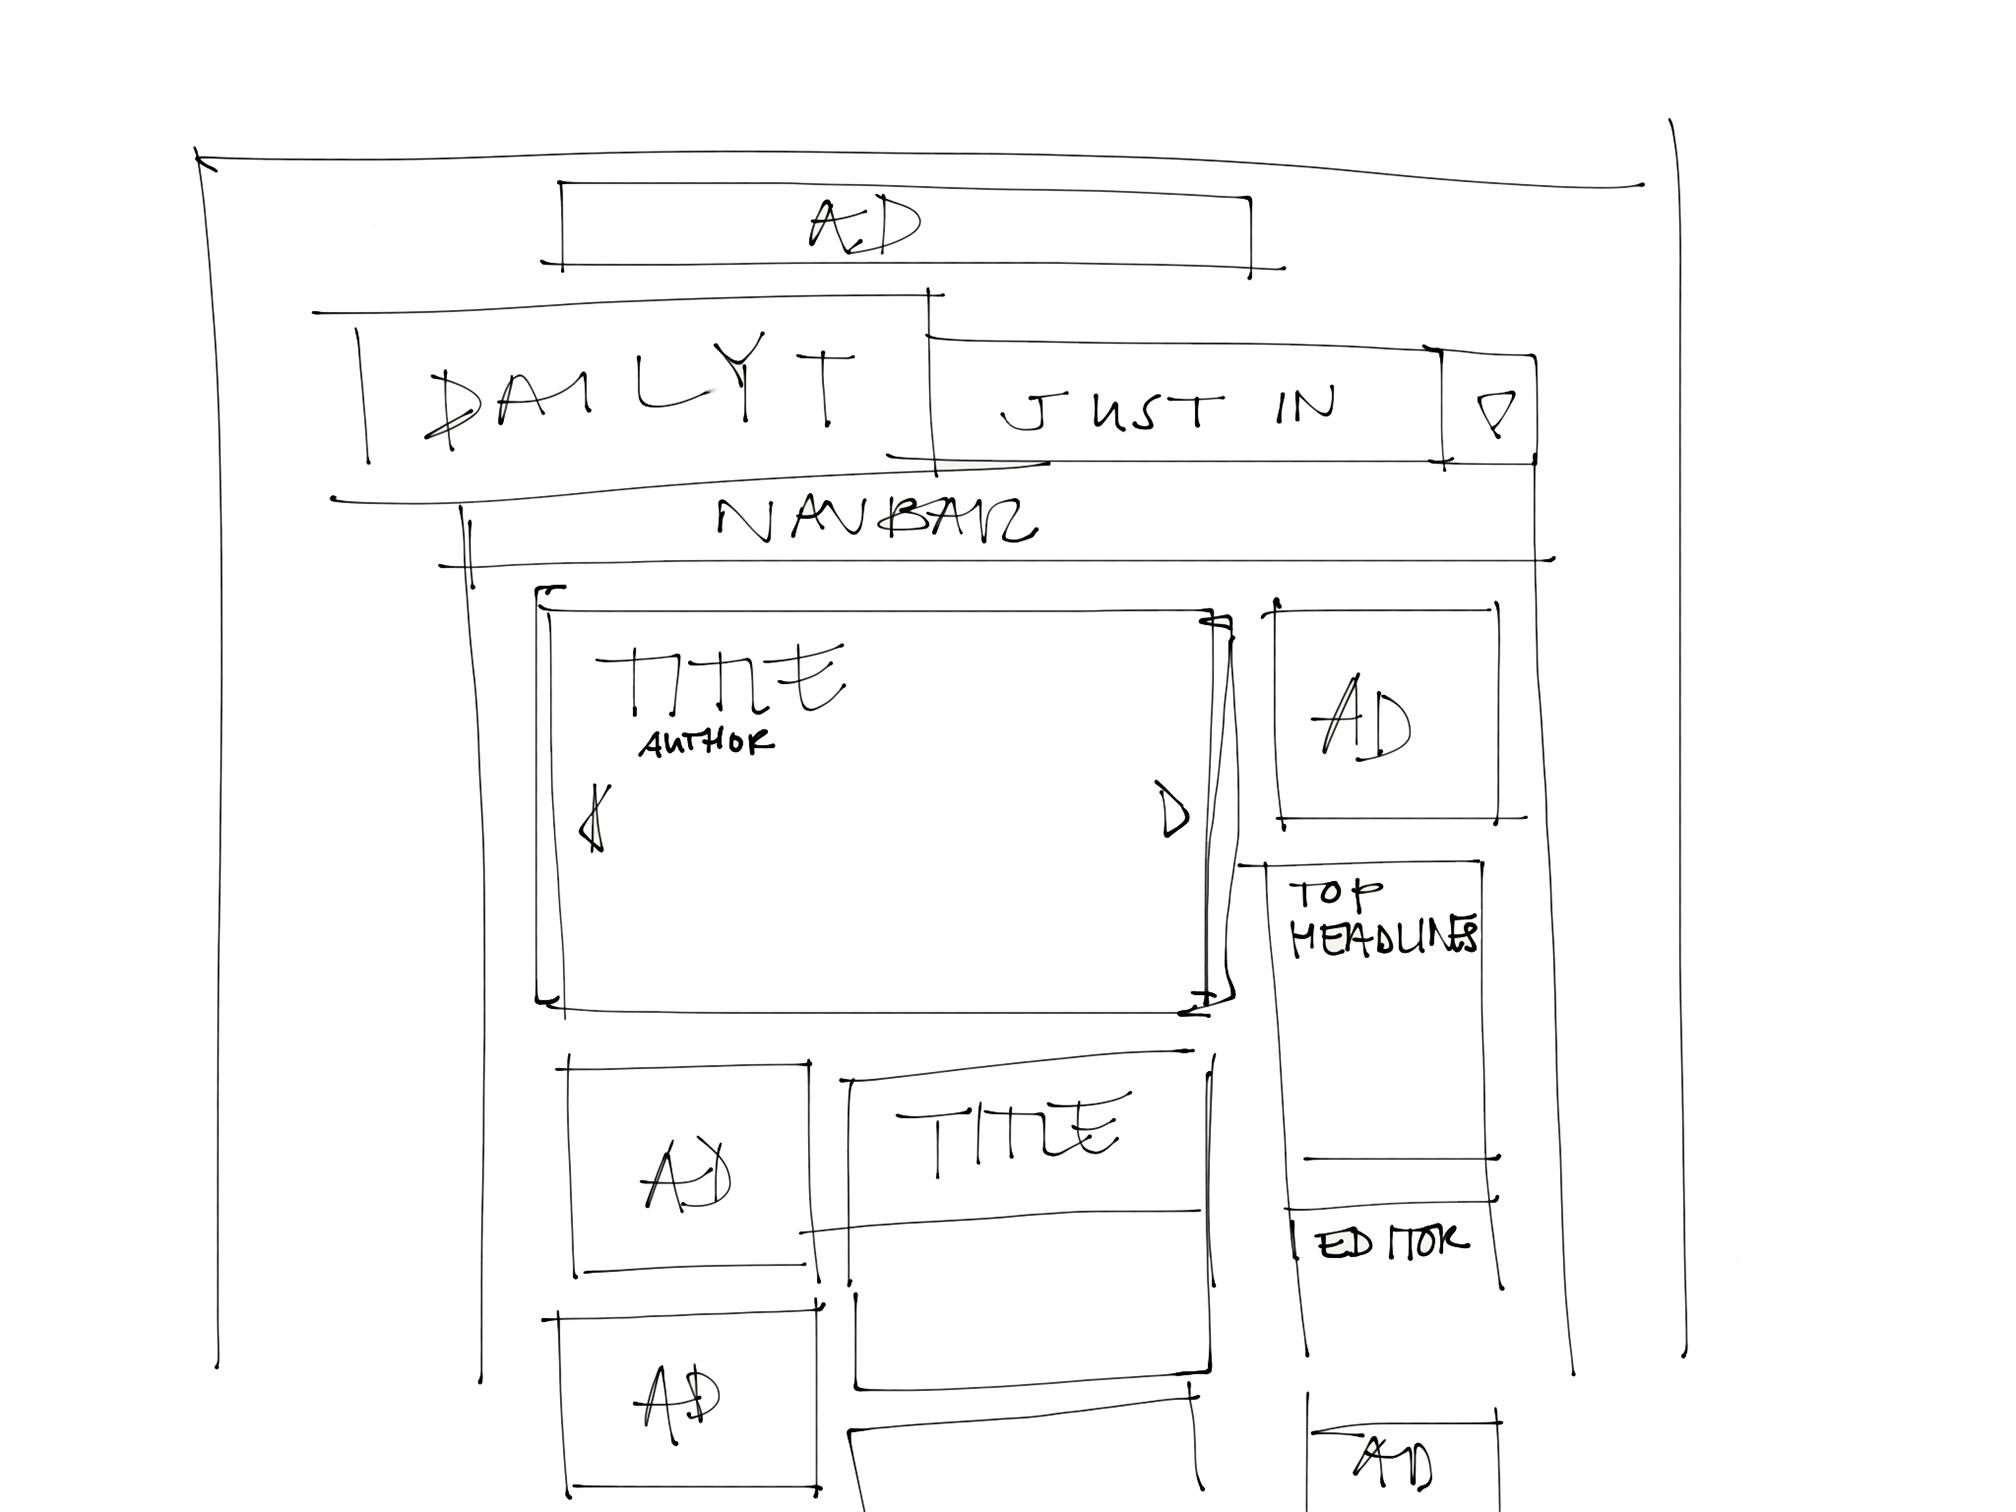 AD
DAILY T
JUST IN
NAVBAR
TITLE
AUTHOR
AD
TOP
HEADLINES
AD
TITLE
EDITOR
AD
AD